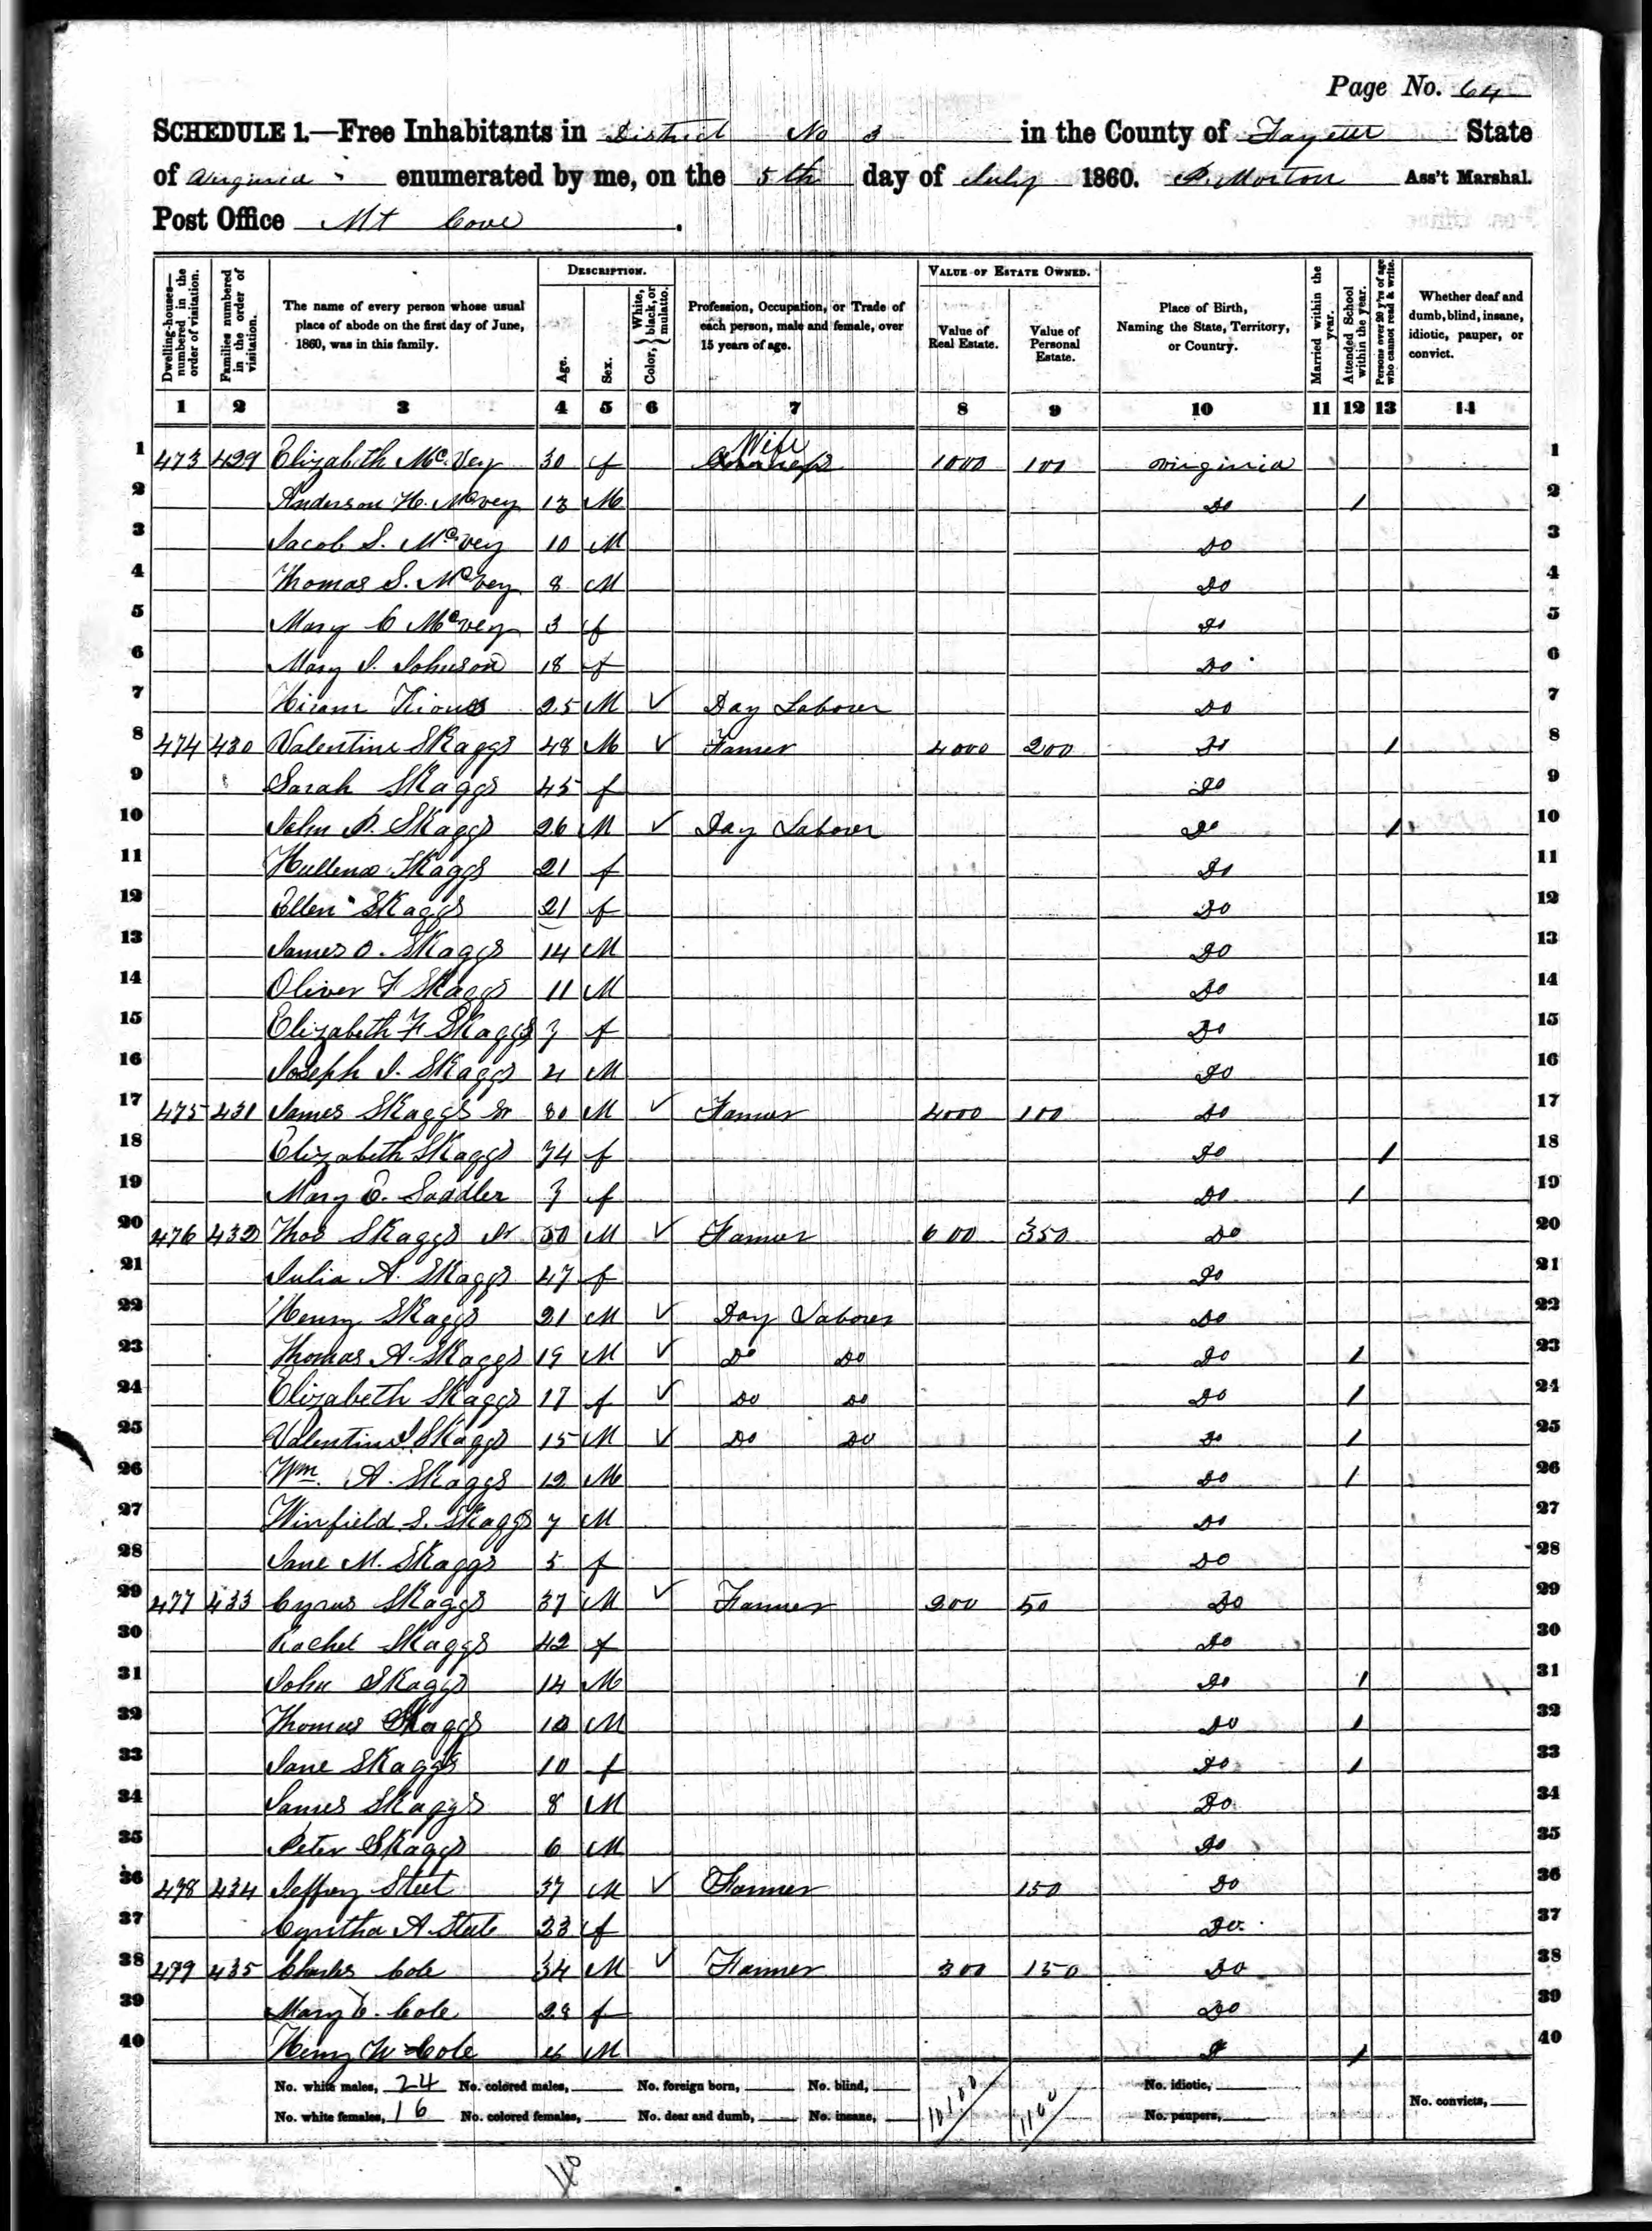 Page No. 64
SCHEDULE 1.—Free Inhabitants in District No 3 in the County of Fayette State
of Virginia enumerated by me, on the 5th day of July 1860. P. Morton Ass't Marshal.
Post Office Mt Cove.
DESCRIPTION. VALUE OF ESTATE OWNED.
Dwelling-houses—numbered in the order of visitation. Families numbered in the order of visitation. The name of every person whose usual place of abode on the first day of June, 1860, was in this family. Age. Sex. Color, White, black, or mulatto. Profession, Occupation, or Trade of each person, male and female, over 15 years of age. Value of Real Estate. Value of Personal Estate. Place of Birth, Naming the State, Territory, or Country. Married within the year. Attended School within the year. Persons over 20 y'rs of age who cannot read & write. Whether deaf and dumb, blind, insane, idiotic, pauper, or convict.
1 2 3 4 5 6 7 8 9 10 11 12 13 14
1 473 429 Elizabeth McVey 30 f Wife 1000 100 Virginia 1
2 Anderson H. McVey 13 M Do / 2
3 Jacob S. McVey 10 M Do 3
4 Thomas S. McVey 8 M Do 4
5 Mary C McVey 3 f Do 5
6 Mary J. Johnson 18 f Do 6
7 Hiram 25 M ✓ Day Laborer Do 7
8 474 430 Valentine Skaggs 48 M ✓ Farmer 4000 200 Do / 8
9 Sarah Skaggs 45 f Do 9
10 John P. Skaggs 26 M ✓ Day Laborer Do / 10
11 Skaggs 21 f Do 11
12 Ellen Skaggs 21 f Do 12
13 James O. Skaggs 14 M Do 13
14 Oliver F Skaggs 11 M Do 14
15 Elizabeth F Skaggs 7 f Do 15
16 Joseph J. Skaggs 4 M Do 16
17 475 431 James Skaggs Sr 80 M ✓ Farmer 4000 100 Do 17
18 Elizabeth Skaggs 74 f Do / 18
19 Mary E. Saddler 7 f Do / 19
20 476 432 Thos Skaggs Sr 50 M ✓ Farmer 600 350 Do 20
21 Julia A. Skaggs 47 f Do 21
22 Henry Skaggs 21 M ✓ Day Laborer Do 22
23 Thomas A. Skaggs 19 M ✓ Do Do Do / 23
24 Elizabeth Skaggs 17 f ✓ Do Do Do / 24
25 Valentine S. Skaggs 15 M ✓ Do Do Do / 25
26 Wm. A. Skaggs 12 M Do / 26
27 Winfield S. Skaggs 7 M Do 27
28 Jane M. Skaggs 5 f Do 28
29 477 433 Cyrus Skaggs 37 M ✓ Farmer 200 50 Do 29
30 Rachel Skaggs 42 f Do 30
31 John Skaggs 14 M Do / 31
32 Thomas Skaggs M Do / 32
33 Jane Skaggs 10 f Do / 33
34 James Skaggs 8 M Do 34
35 Peter Skaggs 6 M Do 35
36 478 434 Jeffrey Steel 37 M ✓ Farmer 150 Do 36
37 Cyntha A Steele 23 f Do 37
38 479 435 Charles Cole 34 M ✓ Farmer 300 150 Do 38
39 Mary C. Cole 28 f Do 39
40 Henry W Cole M / 40
No. white males, 24 No. colored males, No. foreign born, No. blind, 10100 1100 No. idiotic,
No. white females, 16 No. colored females, No. deaf and dumb, No. insane, No. paupers, No. convicts,
40